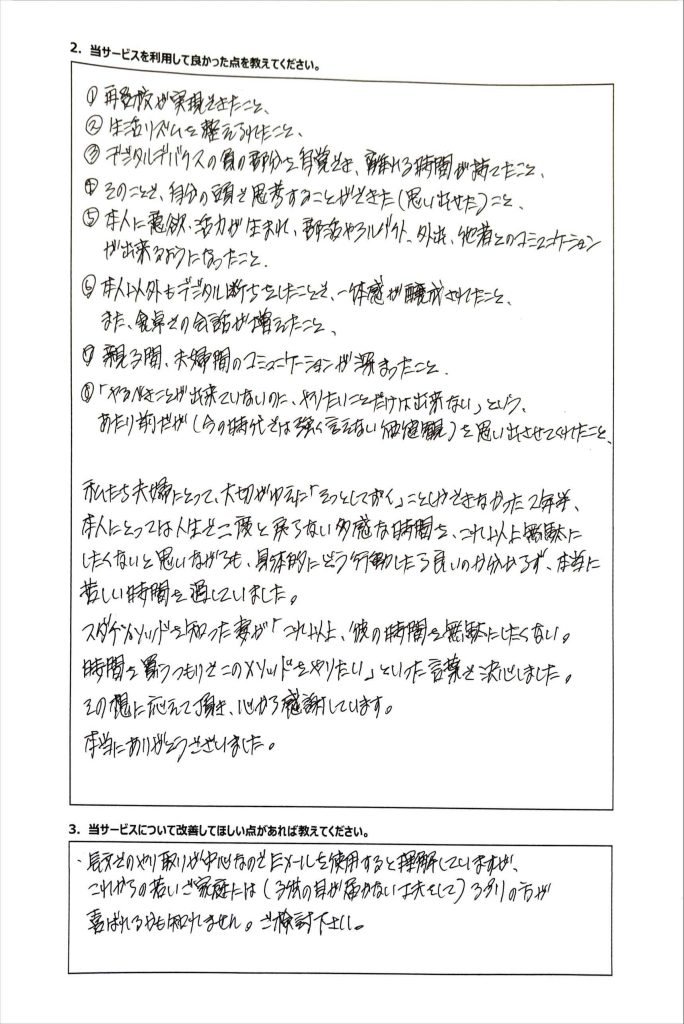 2. 当サービスを利用して良かった点を教えてください。
① 再登校が実現できたこと、
② 生活リズムを整えられたこと、
③ デジタルデバイスの負の部分を自覚でき、離れる時間が持てたこと、
④ そのことで、自分の頭で思考することができた(思い出せた)こと、
⑤ 本人に意欲、活力が生まれ、部活やアルバイト、外出、他者とのコミュニケーション
が出来るようになったこと、
⑥ 本人以外もデジタル断ちをしたことで、一体感が醸成されたこと、
また、食卓での会話が増えたこと、
⑦ 親子間、夫婦間のコミュニケーションが深まったこと、
⑧ 「やるべきことが出来ていないのに、やりたいことだけは出来ない」という、
あたり前だが(今の時代では強く言えない価値観)を思い出させてくれたこと、
私たち夫婦にとって、大切がゆえに「そっとしておく」ことしかできなかった2年半、
本人にとっては人生で二度と戻らない多感な時間を、これ以上無駄に
したくないと思いながらも、具体的にどう行動したら良いのか分からず、本当に
苦しい時間を過していました。
スダチのメソッドを知った妻が「これ以上、彼の時間を無駄にしたくない。
時間を買うつもりでこのメソッドをやりたい」といった言葉で決心しました。
その想に応えて頂き、心から感謝しています。
本当にありがとうございました。
3. 当サービスについて改善してほしい点があれば教えてください。
・長文でのやり取りが中心なのでEメールを使用すると理解していますが、
これからの若いご家庭には(子供の目が届かない工夫をして)の方が
喜ばれるかも知れません。ご検討下さい。